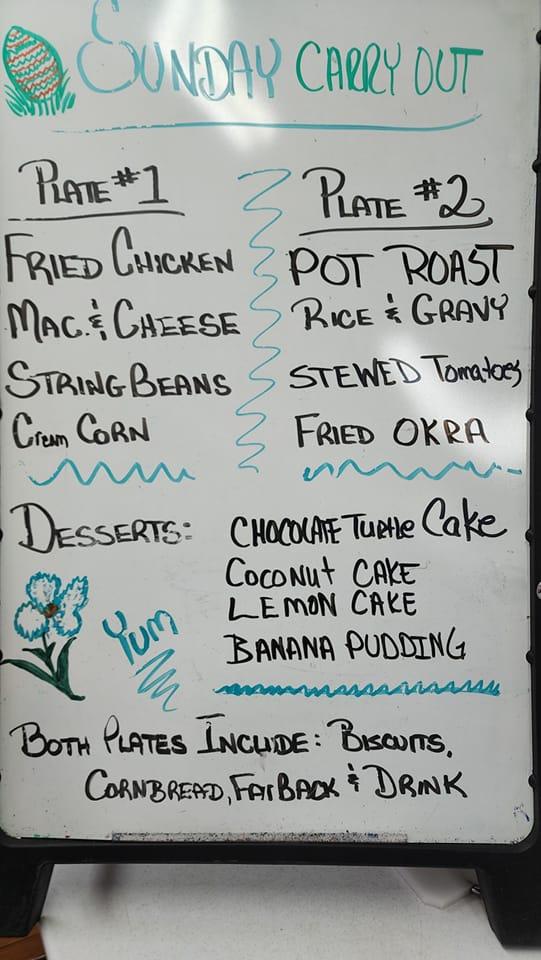 SUNDAY CARRY OUT
PLATE #1
FRIED CHICKEN
MAC. & CHEESE
STRING BEANS
Cream CORN
PLATE #2
POT ROAST
RICE & GRAVY
STEWED Tomatoes
FRIED OKRA
DESSERTS:
CHOCOLATE TURTLE Cake
COCONUT CAKE
LEMON CAKE
BANANA PUDDING
YUM
BOTH PLATES INCLUDE: BISCUITS,
CORNBREAD, FATBACK & DRINK